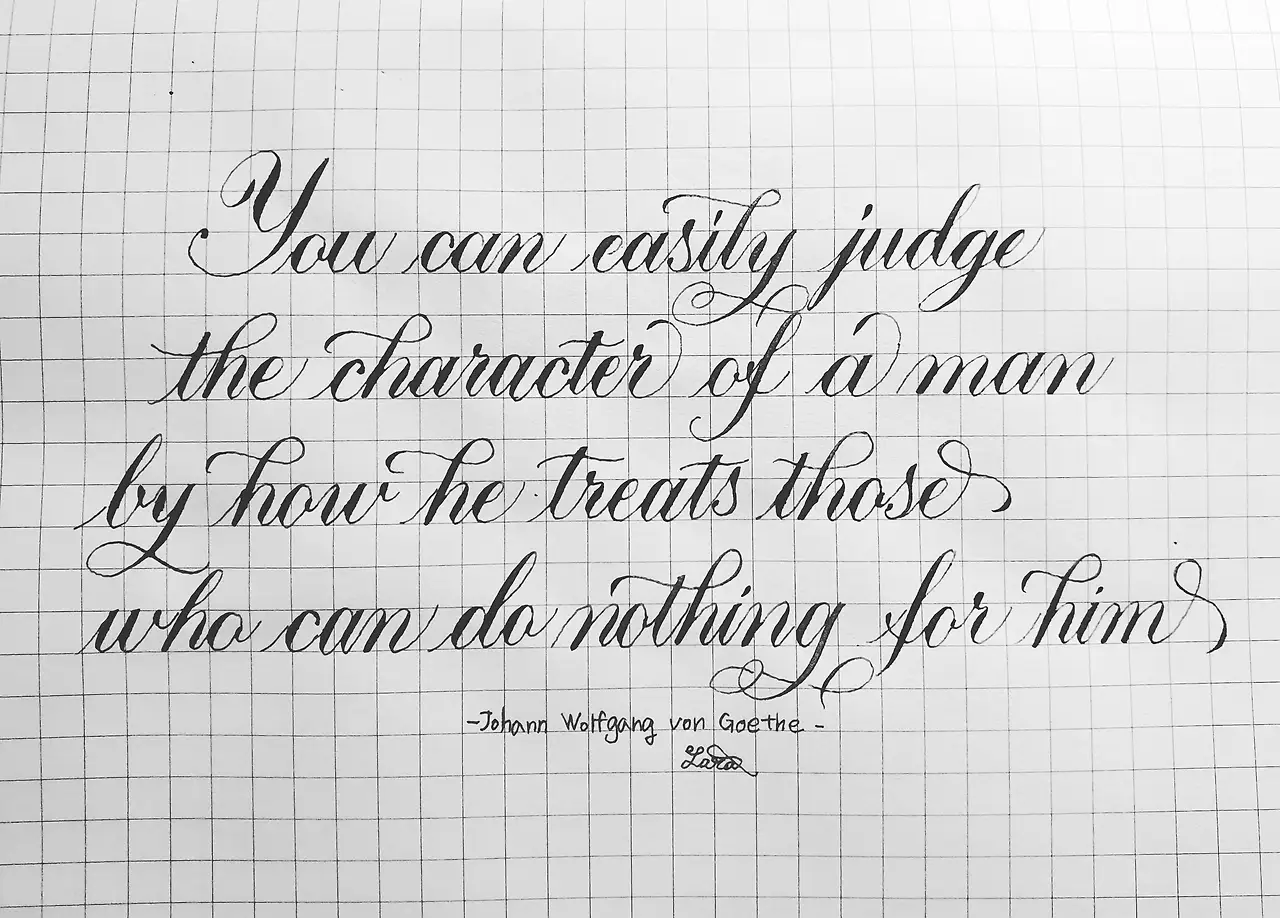 You can easily judge
the character of a man
by how he treats those
who can do nothing for him
-Johann Wolfgang von Goethe-
Lara